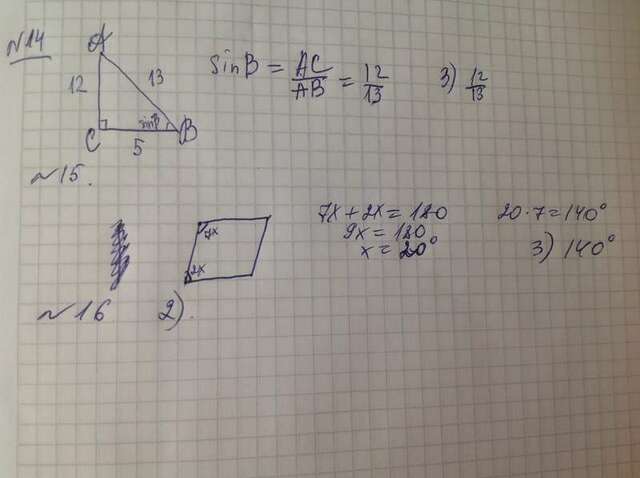 №14
A
12
13
C
sinβ
B
5
sinB = AC/AB = 12/13
3) 12/13
~15.
7x
2x
7x + 2x = 180
9x = 180
x = 20°
20·7 = 140°
3) 140°
~16 2).